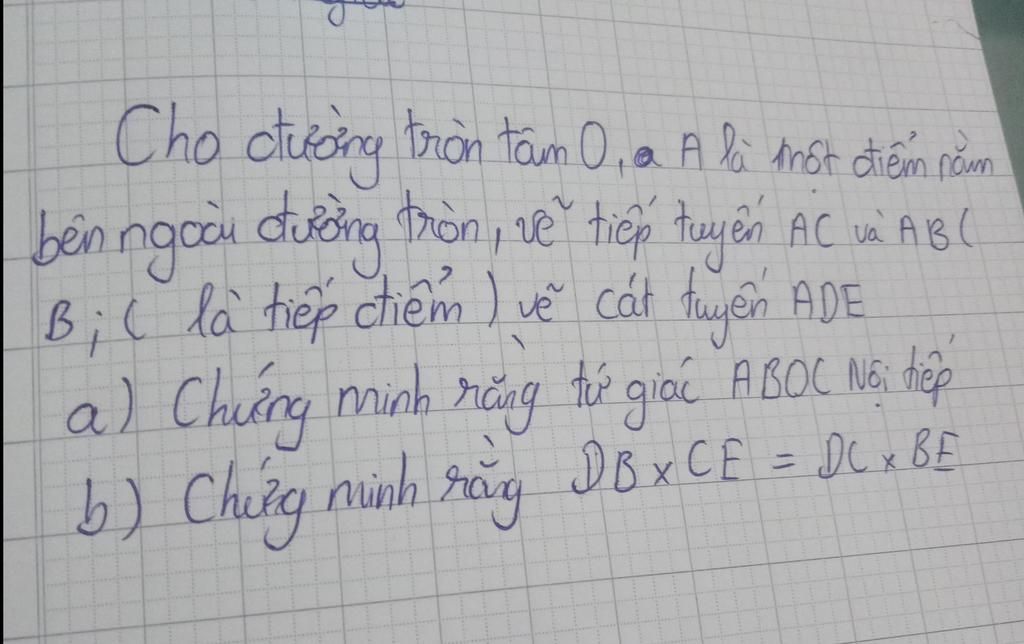 Cho đường tròn tâm O, A là một điểm nằm
bên ngoài đường tròn, vẽ tiếp tuyến AC và AB (
B; C là tiếp điểm) vẽ cát tuyến ADE
a) Chứng minh rằng tứ giác ABOC Nội tiếp
b) Chứng minh rằng DB x CE = DC x BE